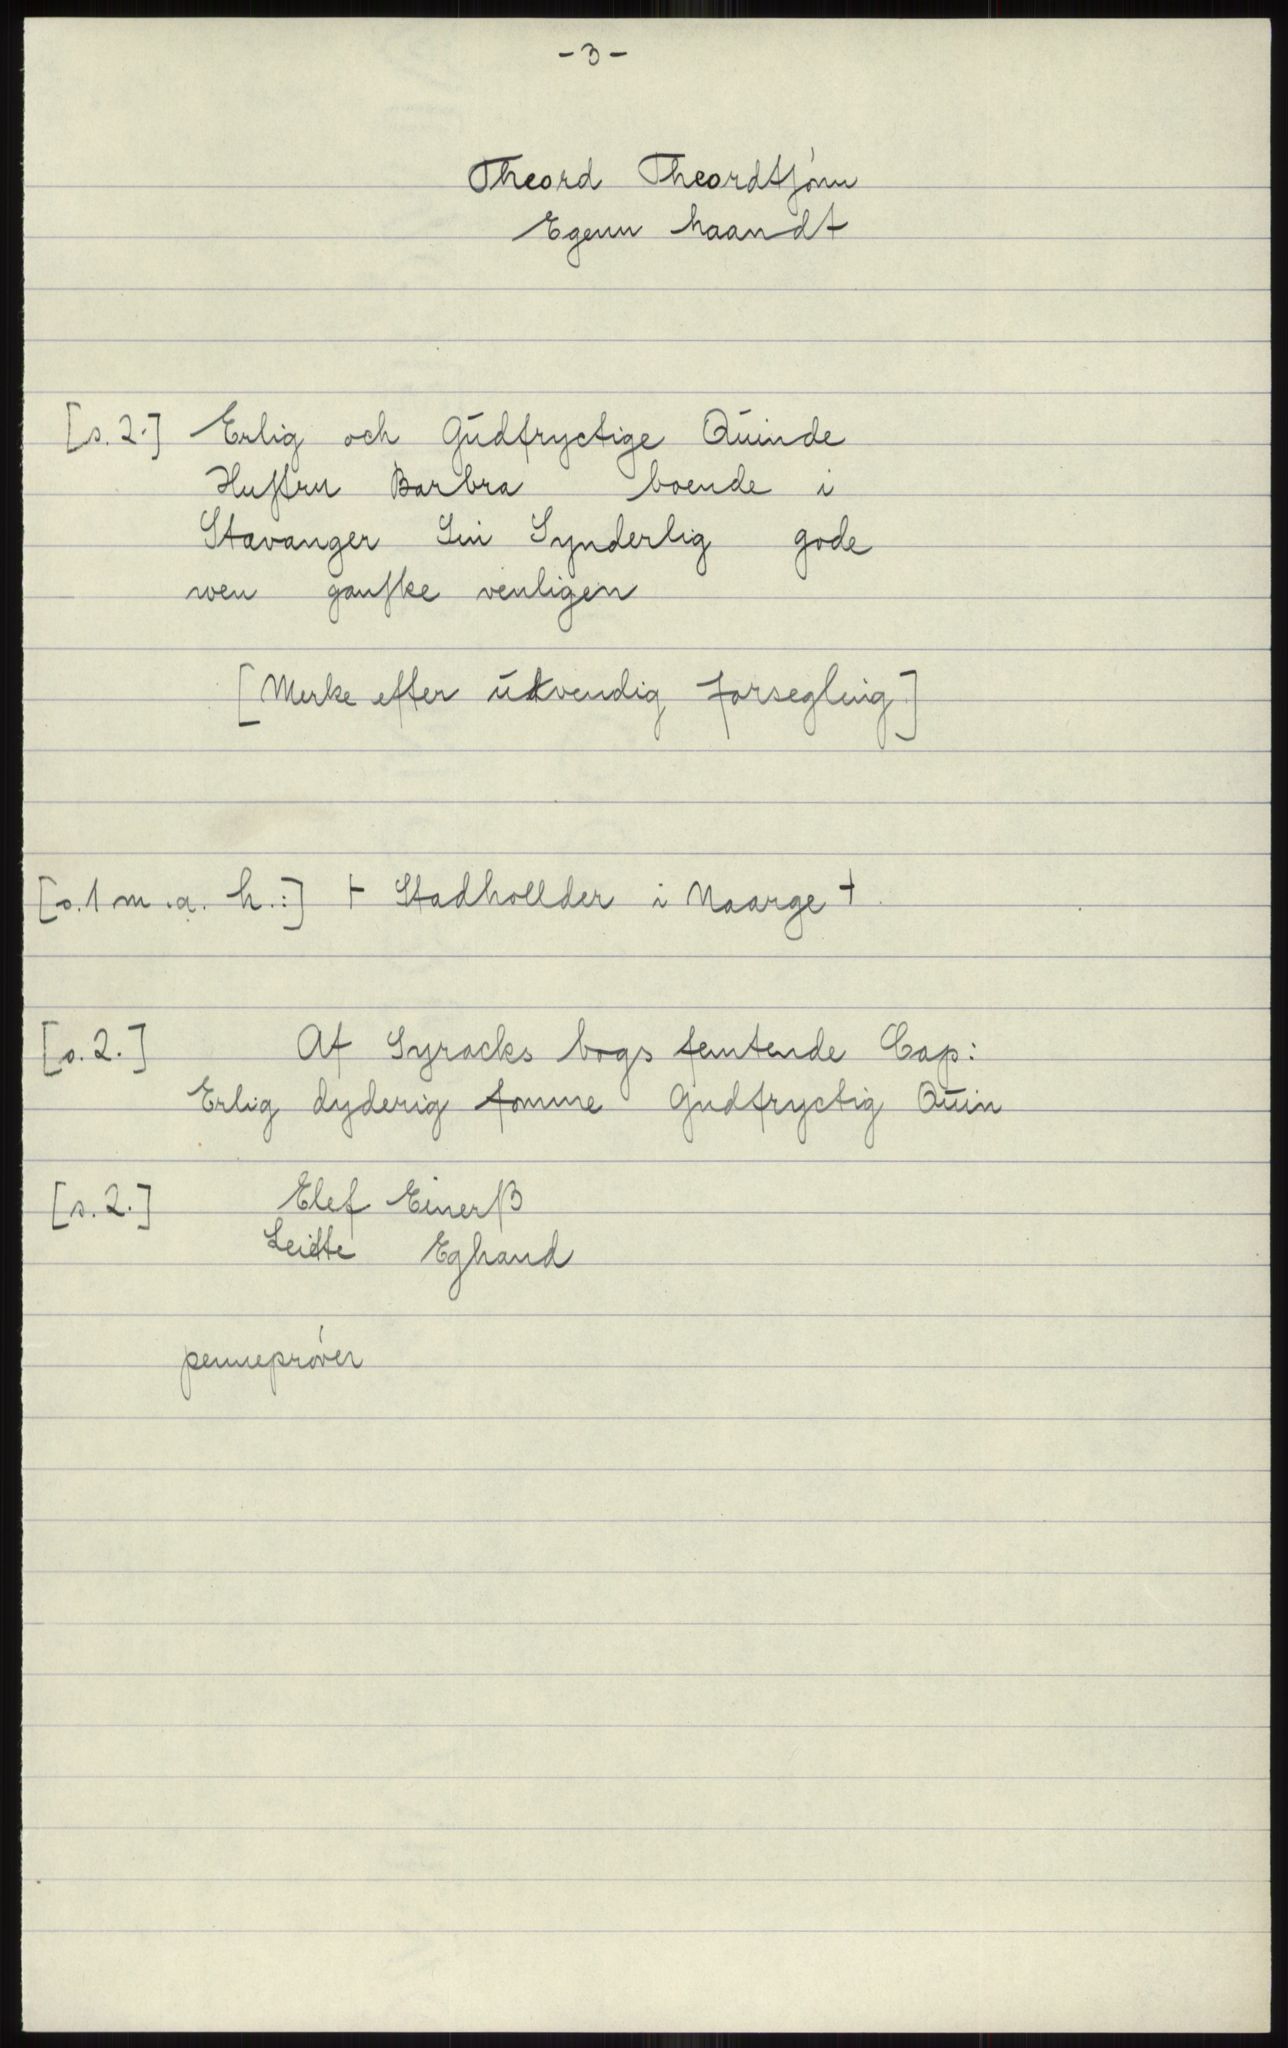 - 3 -
Theord Theordtſønn
Egenn haandt
[s. 2.] Erlig och Gŭdfryctige Qŭinde
Huſtru Barbra boende i
Stavanger Sin Synderlig gode
wen ganſke venligen
[Merke efter ŭtvendig forsegling]
[s. 1 m. a. h.:] + Stadhollder i Naarge +
[s. 2.] Af Syracks bogs femtende Cap:
Erlig dyderig fomme Gudfryctig Qŭin
[s. 2.] Elef Einerß
Leidte Eghand
penneprøver